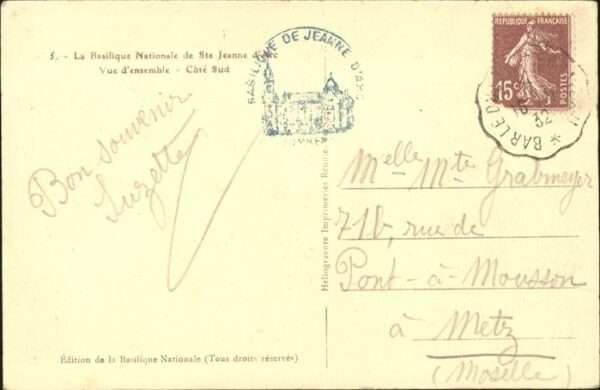 5. - La Basilique Nationale de Ste Jeanne d'Arc
Vue d'ensemble - Côté Sud
BASILIQUE DE JEANNE D'ARC
REPUBLIQUE FRANÇAISE
15c
POSTES
BAR LE D
32
Bon souvenir
Suzette
Melle Mte Grabmeyer
71b, rue de
Pont-à-Mousson
à Metz
(Moselle)
Héliogravure Imprimeries Réunies
Édition de la Basilique Nationale (Tous droits réservés)